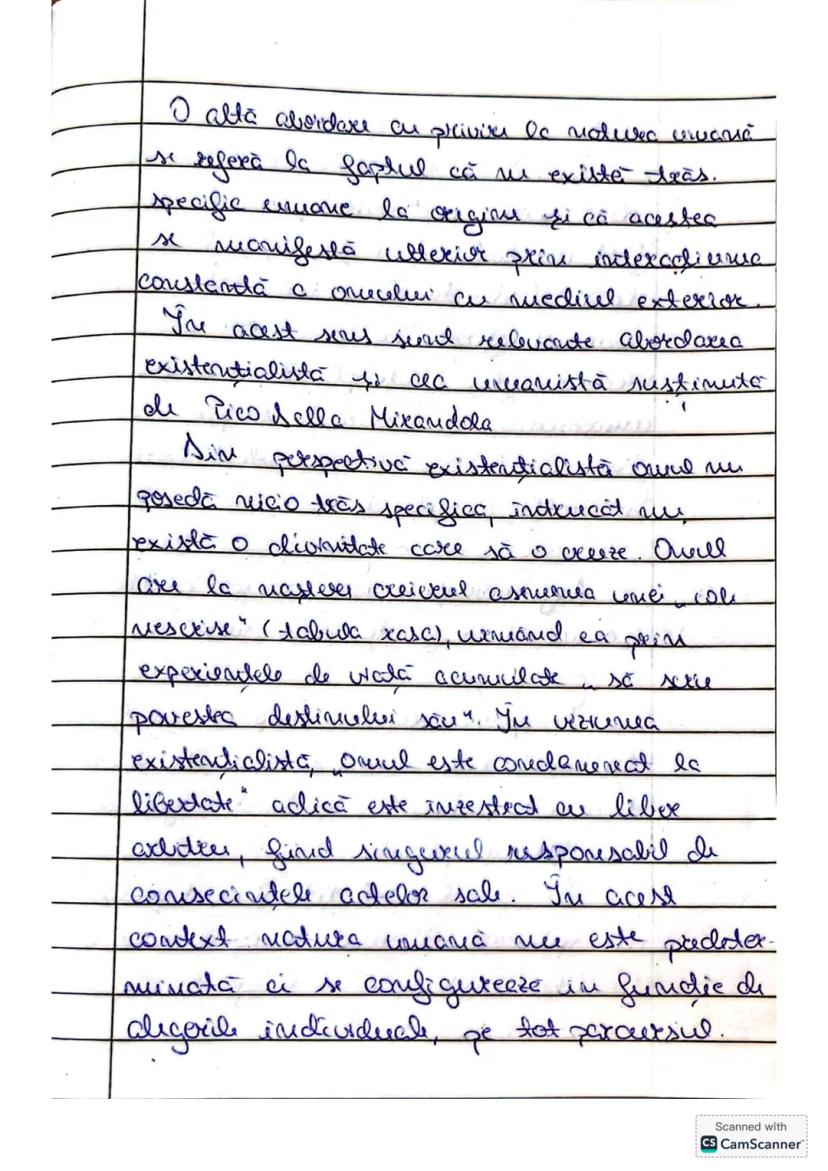 O altă abordare cu privire la natura umană
se referă la faptul că nu există trăs.
specific umane la origine și că acestea
se manifestă ulterior prin interacțiunea
constantă a omului cu mediul exterior.
În acest sens sunt relevante abordarea
existențialistă și cea umanistă susținută
de Pico della Mirandola
Din perspectivă existențialistă omul nu
posedă nicio trăs specifică, întrucât nu
există o divinitate care să o creeze. Omul
are la naștere creierul asemenea unei „coli
nescrise" (tabula rasa), urmând ca prin
experiențele de viață acumulate „să scrie
povestea destinului său". În viziunea
existențialistă, „Omul este condamnat la
libertate" adică este înzestrat cu liber
arbitru, fiind singurul responsabil de
consecințele actelor sale. În acest
context natura umană nu este predeter-
minată ci se configurează în funcție de
alegerile individuale, pe tot parcursul.
Scanned with
CS CamScanner